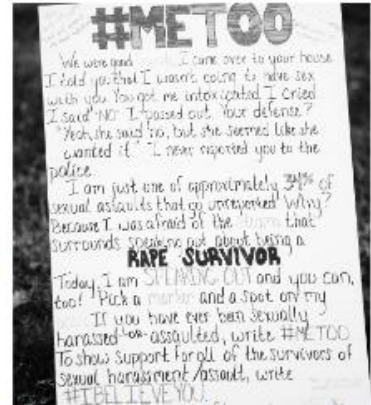 #METOO
We were good I came over to your house
I told you that I wasn't going to have sex
with you You got me intoxicated I cried
I said "NO" I passed out Your defense?
"Yeah, she said no, but she seemed like she
wanted it." I never reported you to the
police.
I am just one of approximately of
sexual assaults that go unreported Why?
Because I was afraid of the that
surrounds speaking out about being a
RAPE SURVIVOR
Today, I am SPEAKING OUT and you can,
too! Pick a marker and a spot on my
If you have ever been sexually
harassed -OR- assaulted, write #METOO
To show support for all of the survivors of
sexual harassment/assault, write
#IBELIEVEYOU.